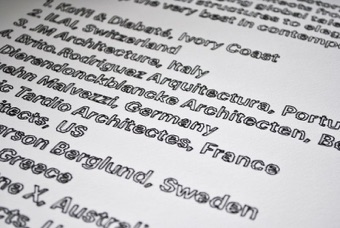 structures to ele
the very best in contemp
1. Koffi & Diabaté, Ivory Coast
2. ILAI, Switzerland
3. JM Architecture, Italy
4. Brito.Rodríguez Arquitectura, Portu
Dierendonckblancke Architecten, Be
uehn Malvezzi, Germany
ic Tardio Architectes, France
itects, US
arson Berglund, Sweden
Greece
ne X, Australi
cts, U